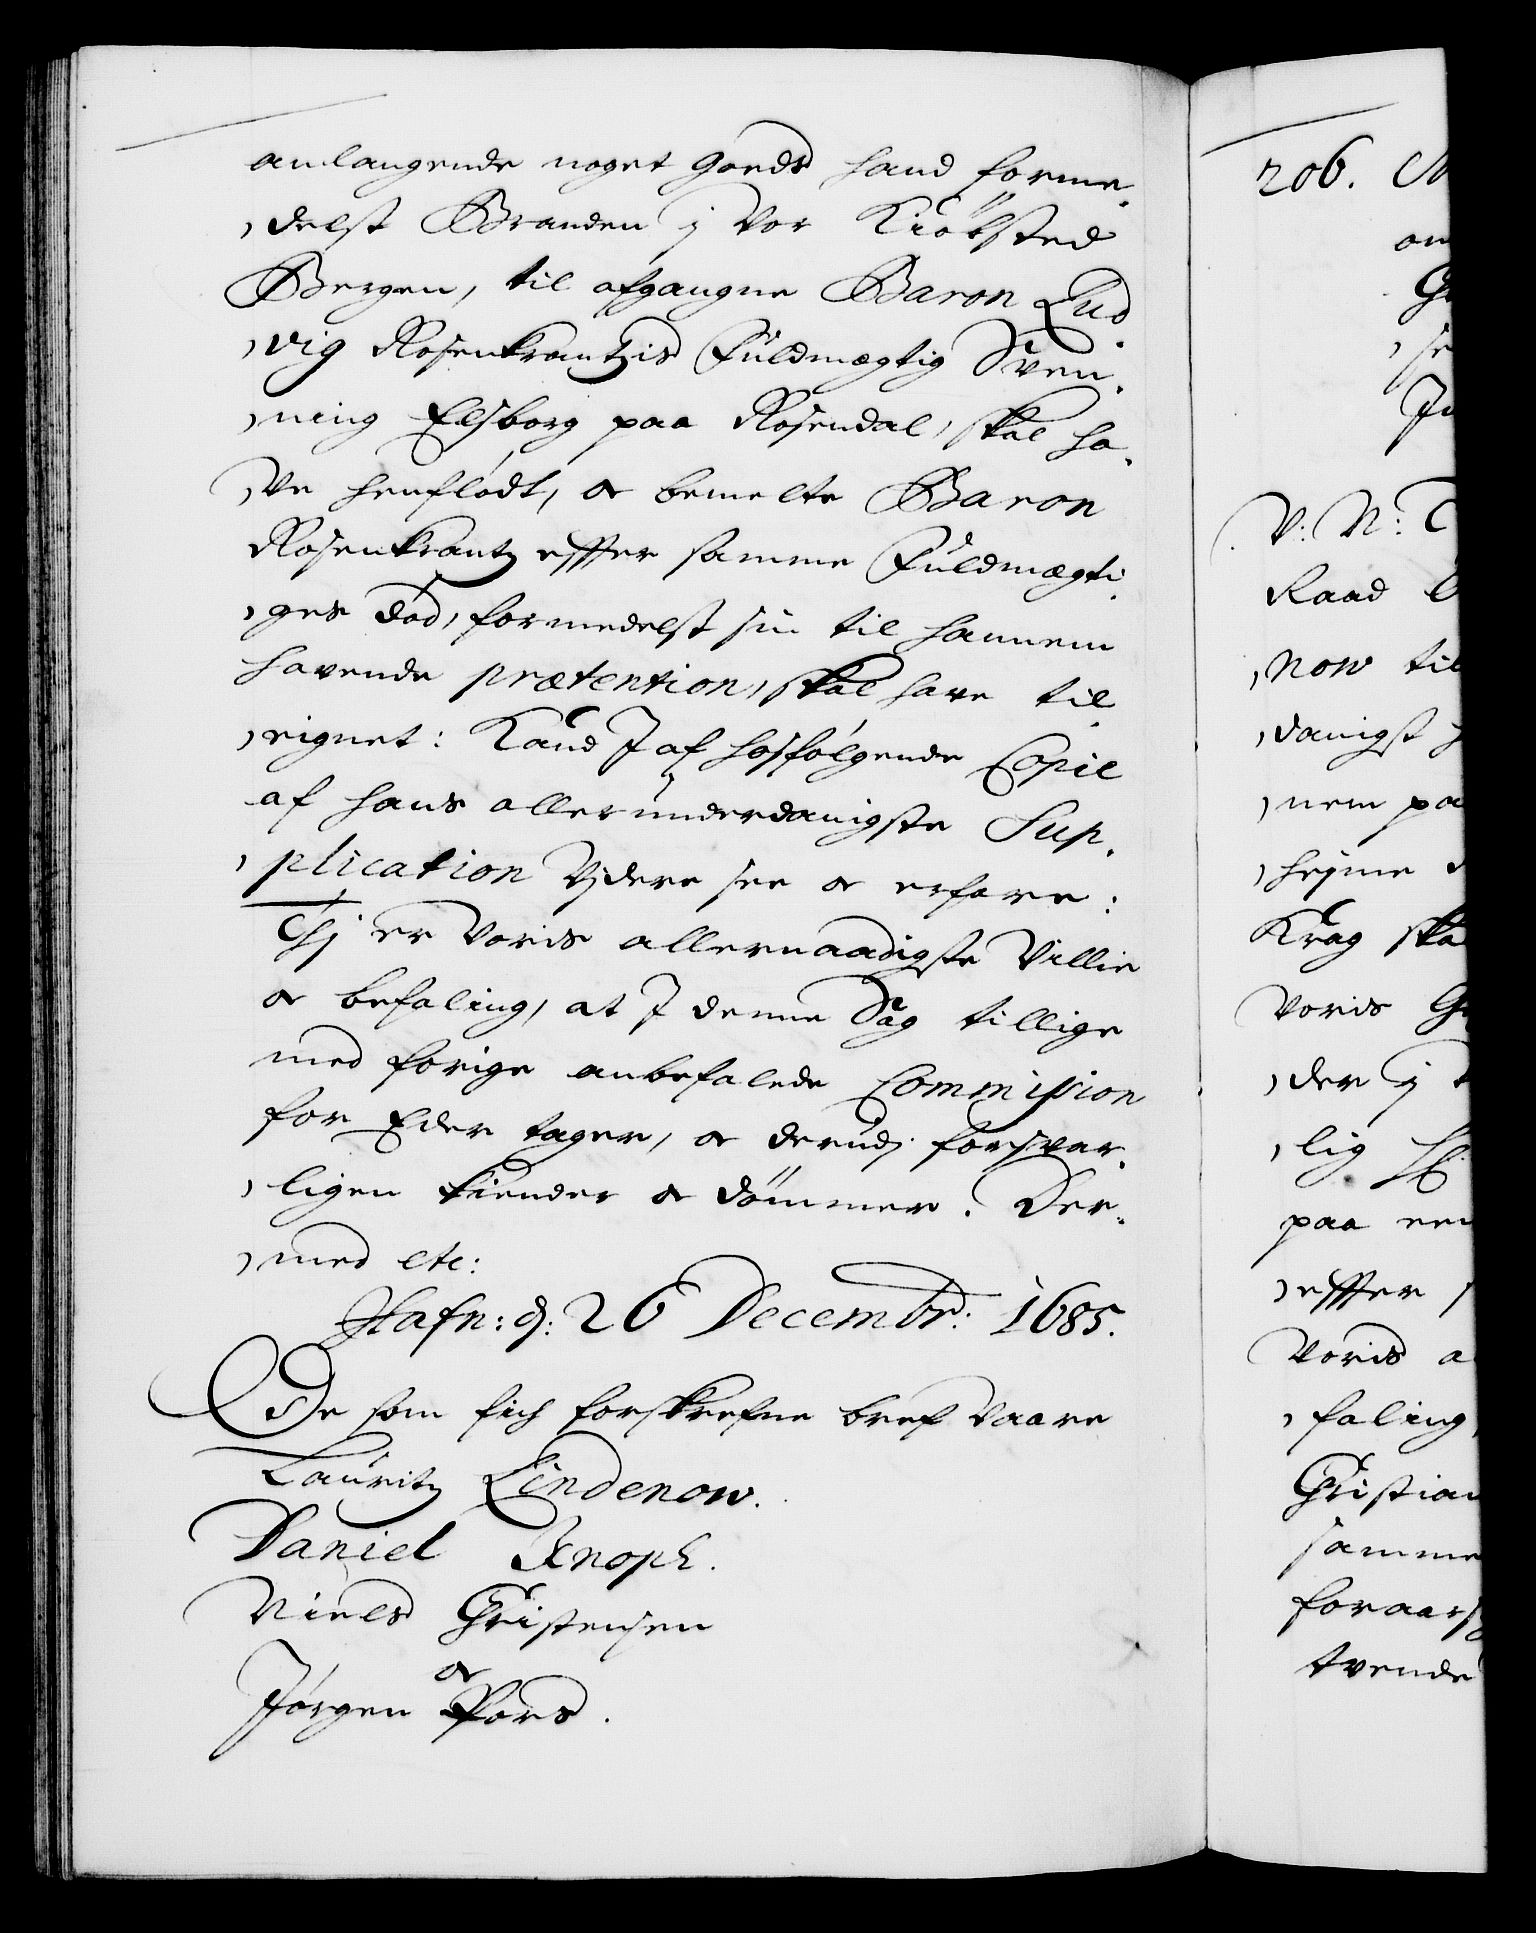 anlangende noget Goeds hand forme-
,delst Branden j Vor Kiöbsted
Bergen, til afgangne Baron Lud
,vig Rosenkrantzis Fuldmægtig Sven-
,ning Elsborg paa Rosendal, skal ha-
,ve henflödt, oc bemelte Baron
Rosenkrantz effter samme Fuldmægti
,ges död, formedelst sin til hannem
havende prætention, skal have til
,eignet: Kand J af hosfölgende Copie
af hans allerunderdanigste Sup-
,plication Vjdere see oc erfare:
Thj er Voris allernaadigste Villie
oc befaling, at J denne Sag tillige
med forige anbefalede Commission
for Eder tager, oc derudj forsvar-
,ligen kiender oc dömmer. Der-
,med etc:
Hafn: d: 26 Decembr: 1685.
De som fich forskrefne bref vaare
Lauritz Lindenow.
Daniel Knoph.
Niels Christensen
oc
Jörgen Pors.
206.
V: N:
Raad
,now til
,danigst
,nem pa
,hejme
Krag ska
Voris
,der j
,lig
paa een
,effter
Voris a
,faling,
Christian
samme
foraars
tvende